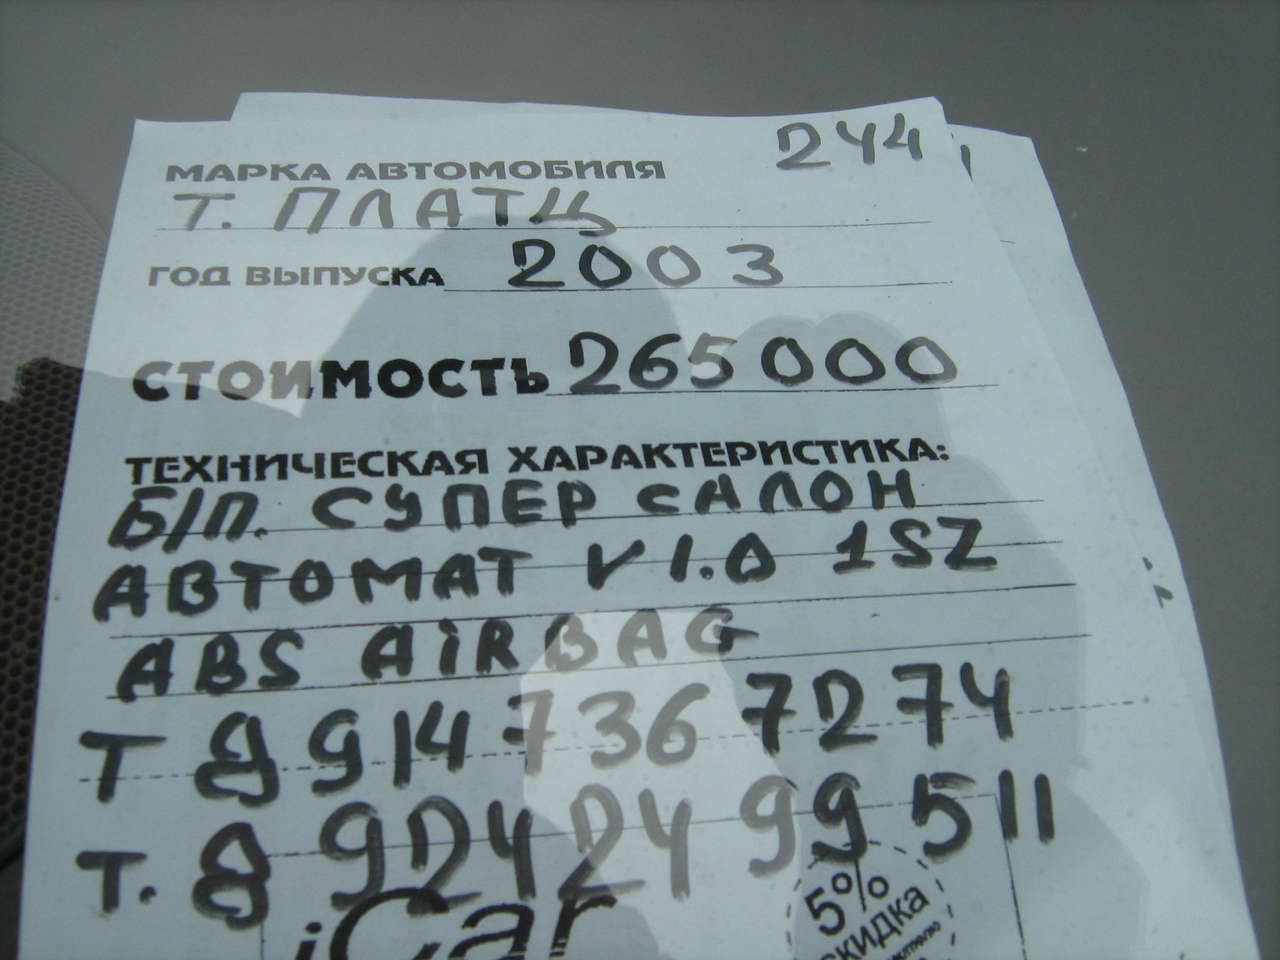 244
МАРКА АВТОМОБИЛЯ
Т. ПЛАТЦ
ГОД ВЫПУСКА 2003
СТОИМОСТЬ 265000
ТЕХНИЧЕСКАЯ ХАРАКТЕРИСТИКА:
Б/П. СУПЕР САЛОН
АВТОМАТ V 1.0 1SZ
ABS AIRBAG
Т 8 914 736 7274
Т. 8 924 24 99 511
iCar
5%
скидка